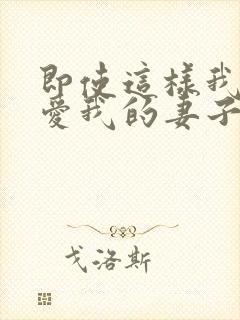 即使這樣我
愛我的妻子
戈洛斯